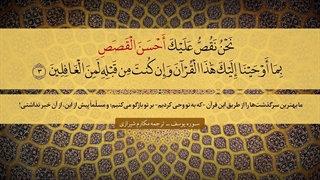 نَحْنُ نَقُصُّ عَلَيْكَ أَحْسَنَ الْقَصَصِ
بِمَا أَوْحَيْنَا إِلَيْكَ هَذَا الْقُرْآنَ وَإِن كُنتَ مِن قَبْلِهِ لَمِنَ الْغَافِلِينَ ﴿۳﴾
ما بهترین سرگذشت‌ها را از طریق این قرآن - که به تو وحی کردیم - بر تو بازگو می‌کنیم؛ و مسلّماً پیش از این، از آن خبر نداشتی!
سوره یوسف - ترجمه مکارم شیرازی